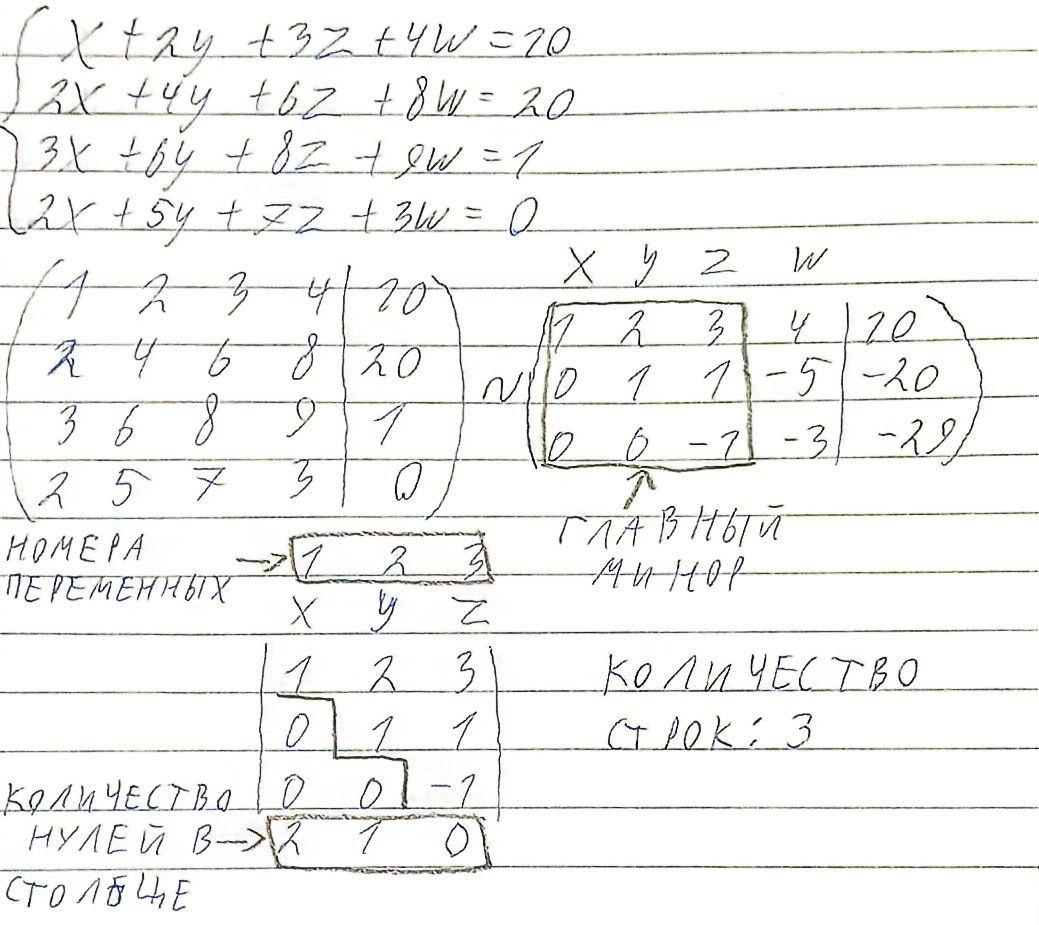 x + 2y + 3z + 4w = 10
2x + 4y + 6z + 8w = 20
3x + 6y + 8z + 9w = 1
2x + 5y + 7z + 3w = 0
1 2 3 4 | 10
2 4 6 8 | 20
3 6 8 9 | 1
2 5 7 3 | 0
~
x y z w
1 2 3 4 | 10
0 1 1 -5 | -20
0 0 -1 -3 | -29
ГЛАВНЫЙ
МИНОР
НОМЕРА
ПЕРЕМЕННЫХ
→ 1 2 3
x y z
1 2 3
0 1 1
0 0 -1
КОЛИЧЕСТВО
СТРОК: 3
КОЛИЧЕСТВО
НУЛЕЙ В → 2 1 0
СТОЛБЦЕ